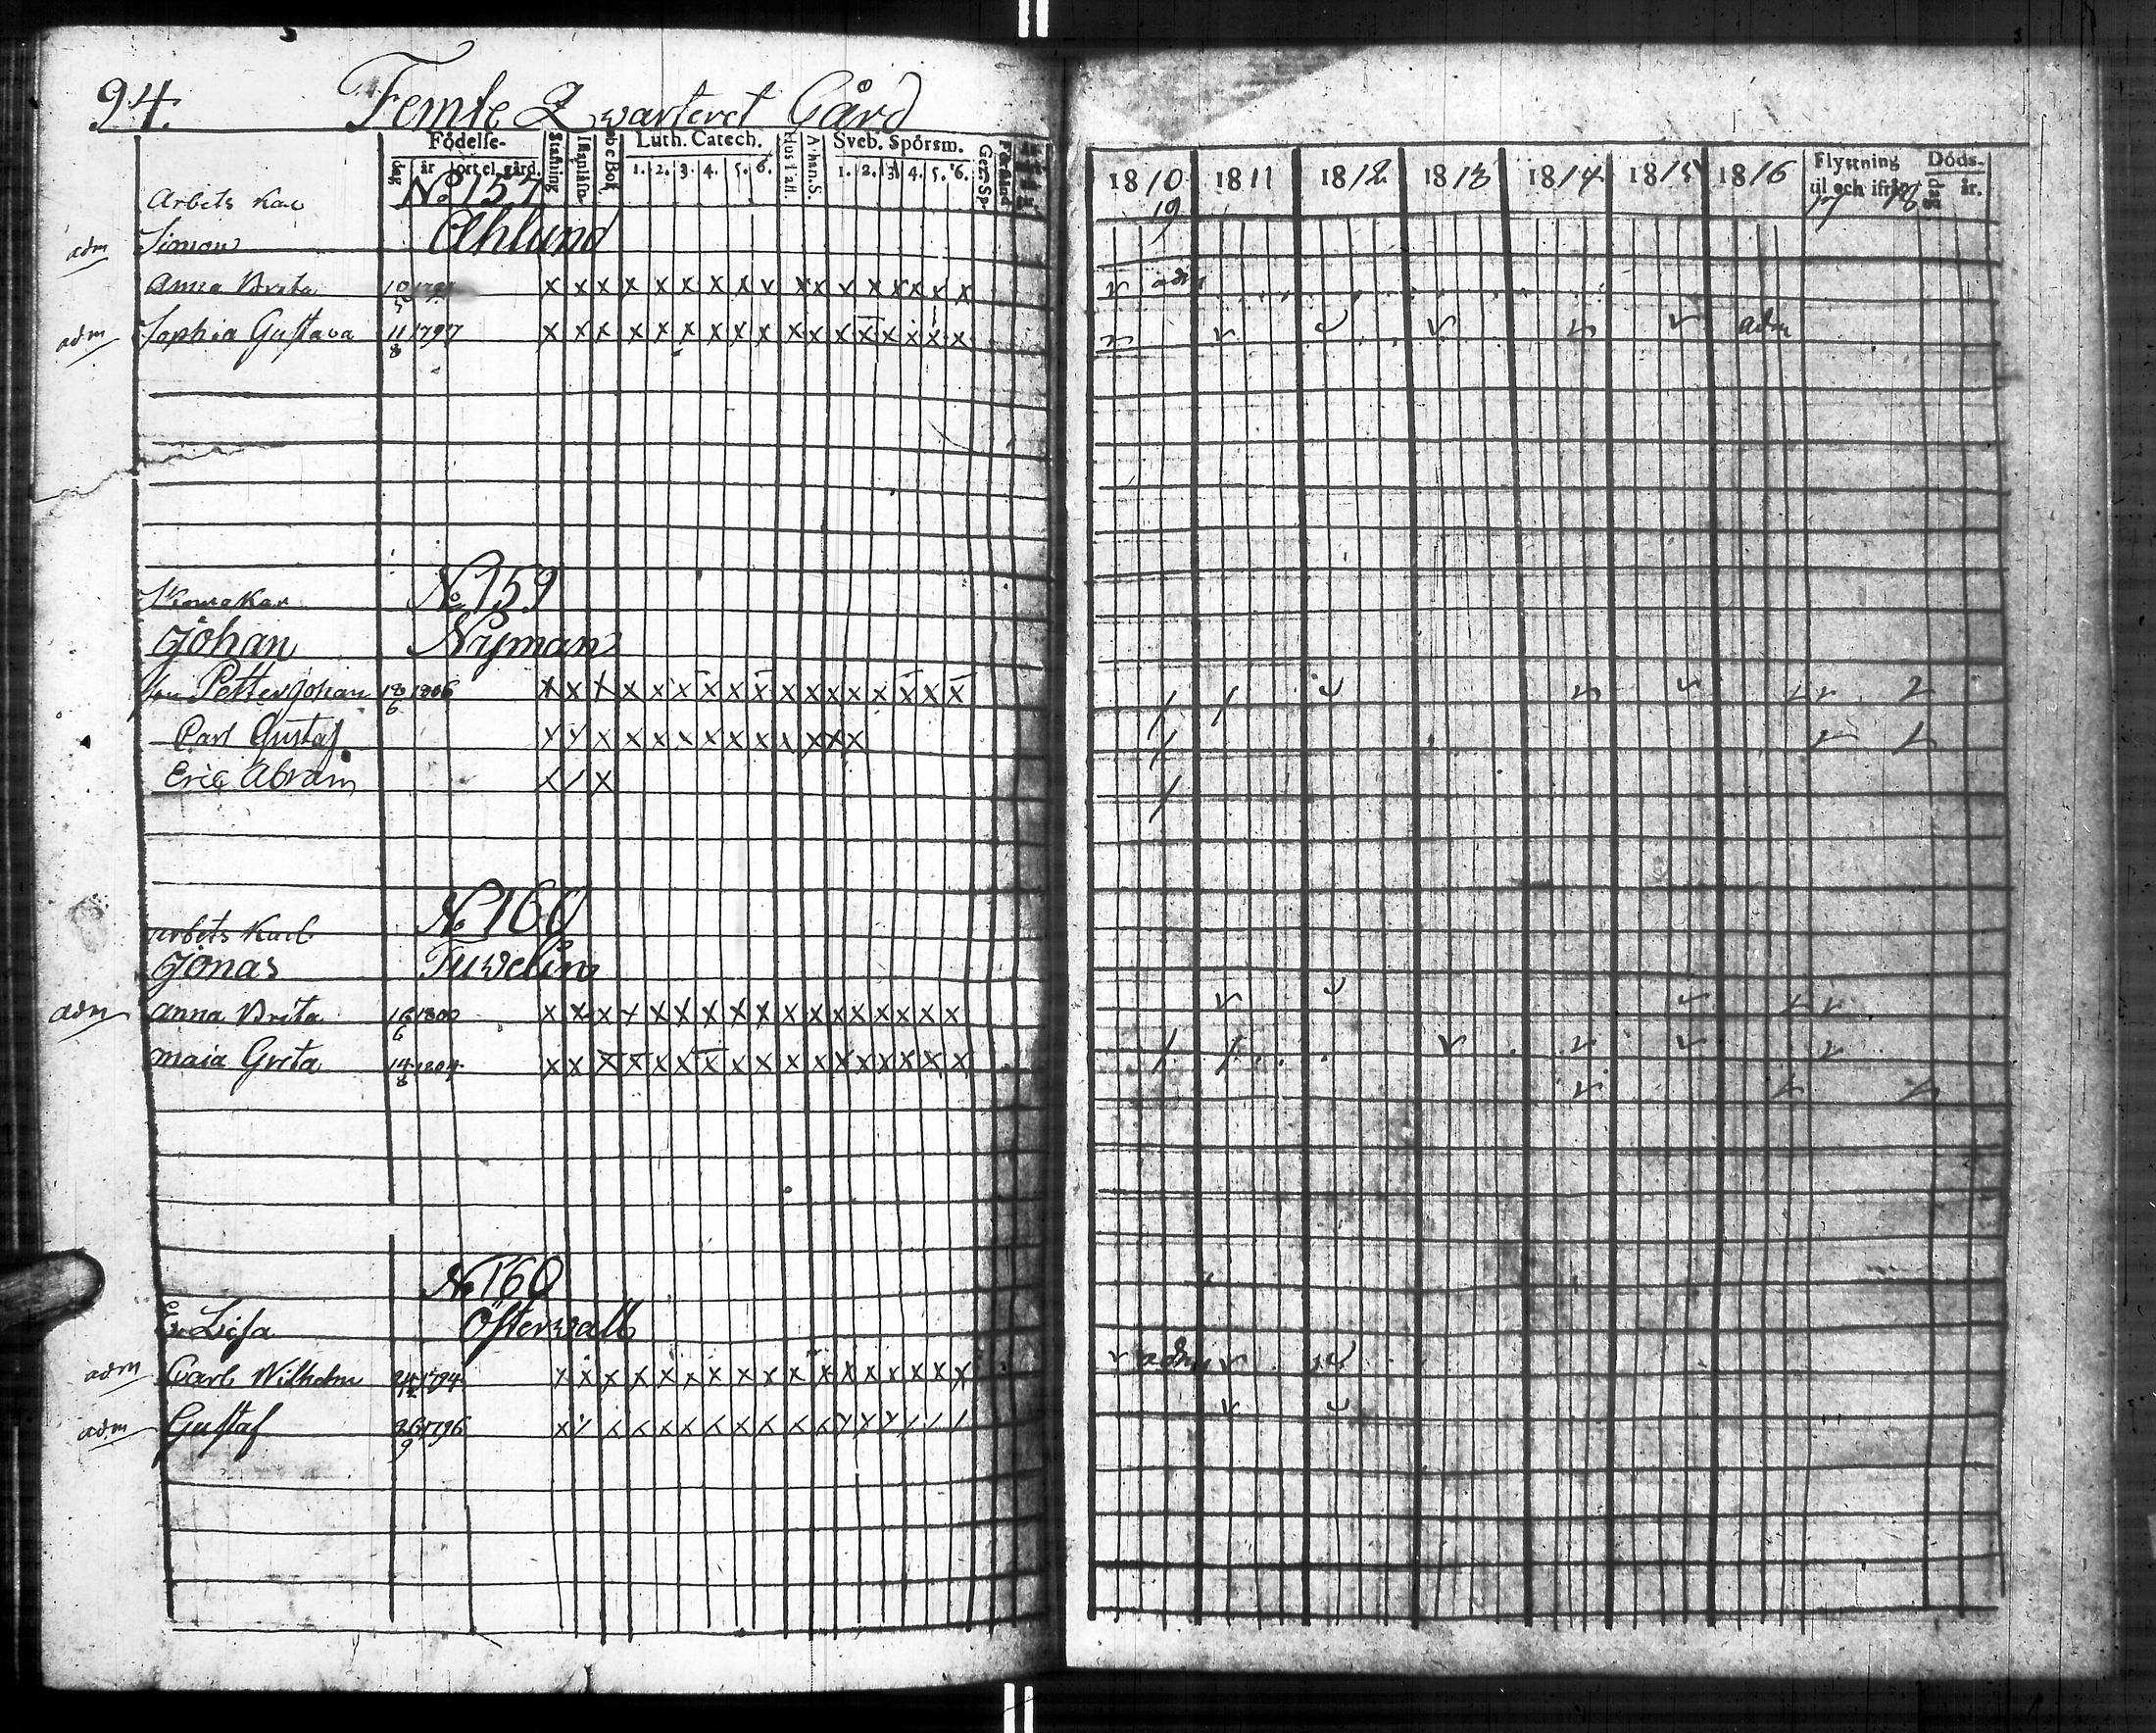 94. Femte Qwarteret Gård
Födelse-
dag år ort el. gård.
Stafning
Luth. Catech.
1. 2. 3. 4. 5. 6.
Sveb. Spörsm.
1. 2. 3. 4. 5. 6.
1810 1811 1812 1813 1814 1815 1816 Flyttning til och ifrån Döds- dag år.
19 17 18
Arbets Kar No 157
adm Simon Åhlund
Anna Brita 10/5 adm
adm Sophia Gustava 11/8 1797 adm
Skomakar No 159
Johan Nyman
Son Petter Johan 18/6 1806
Carl Gustaf
Eric Abram
arbets Karl No 160
Jonas Tuwelin
adm Anna Brita 16/6 1800
Maia Greta 14/8 1804
No 160
E. Lisa Österwall
adm Carl Wilhelm 24/12 1794 adm
adm Gustaf 26/9 1796